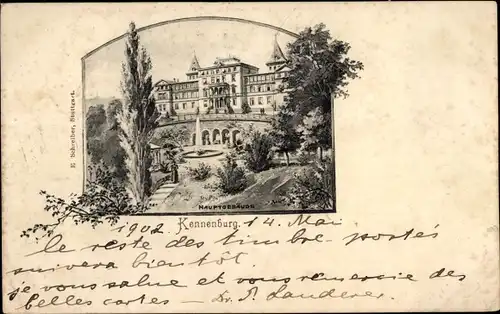 E. Schreiber, Stuttgart.
HAUPTGEBÄUDE
Kennenburg. 14. Mai
1902
le reste des timbre-postes
suivera bientôt.
je vous salue et vous remercie des
belles cartes - Dr. P. Landerer.